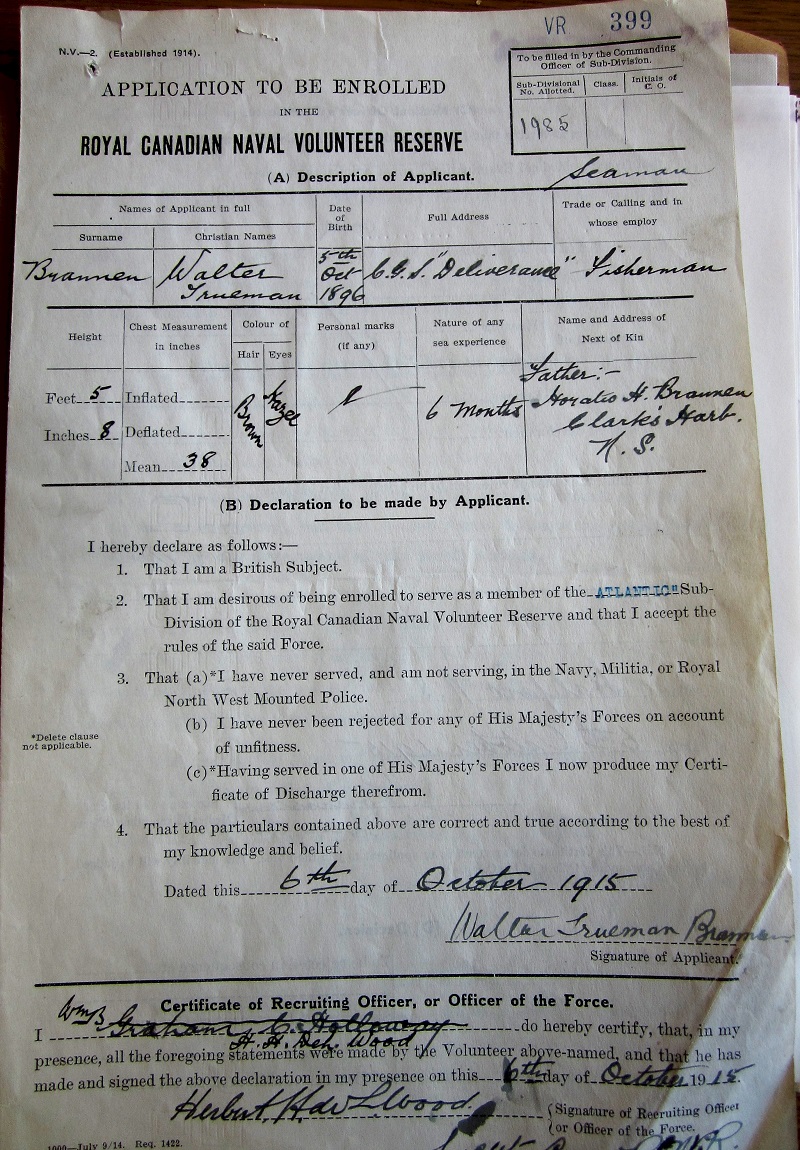 VR 399
N.V.—2. (Established 1914).
To be filled in by the Commanding
Officer of Sub-Division.
Sub-Divisional
No. Allotted.
Class.
Initials of
C. O.
1985
APPLICATION TO BE ENROLLED
IN THE
ROYAL CANADIAN NAVAL VOLUNTEER RESERVE
(A) Description of Applicant.
Seaman
Names of Applicant in full
Surname
Christian Names
Date
of
Birth
Full Address
Trade or Calling and in
whose employ
Brannen
Walter
Trueman
5th
Oct
1896
C.G.S. "Deliverance"
Fisherman
Height
Chest Measurement
in inches
Colour of
Hair
Eyes
Personal marks
(if any)
Nature of any
sea experience
Name and Address of
Next of Kin
Feet 5
Inches 8
Inflated
Deflated
Mean 38
Brown
Hazel
6 Months
Father:-
Horatio H. Brannen
Clark's Harb.
N. S.
(B) Declaration to be made by Applicant.
I hereby declare as follows:—
1. That I am a British Subject.
2. That I am desirous of being enrolled to serve as a member of the ATLANTIC" Sub-
Division of the Royal Canadian Naval Volunteer Reserve and that I accept the
rules of the said Force.
3. That (a)*I have never served, and am not serving, in the Navy, Militia, or Royal
North West Mounted Police.
(b) I have never been rejected for any of His Majesty's Forces on account
of unfitness.
*Delete clause
not applicable.
(c)*Having served in one of His Majesty's Forces I now produce my Certi-
ficate of Discharge therefrom.
4. That the particulars contained above are correct and true according to the best of
my knowledge and belief.
Dated this 6th day of October 1915
Walter Trueman Brannen
Signature of Applicant.
Certificate of Recruiting Officer, or Officer of the Force.
I Graham C. Holloway do hereby certify, that, in my
H. H. Wood
presence, all the foregoing statements were made by the Volunteer above-named, and that he has
made and signed the above declaration in my presence on this 6th day of October 1915.
Herbert Wood
Signature of Recruiting Officer
or Officer of the Force.
1000—July 9/14. Req. 1422.